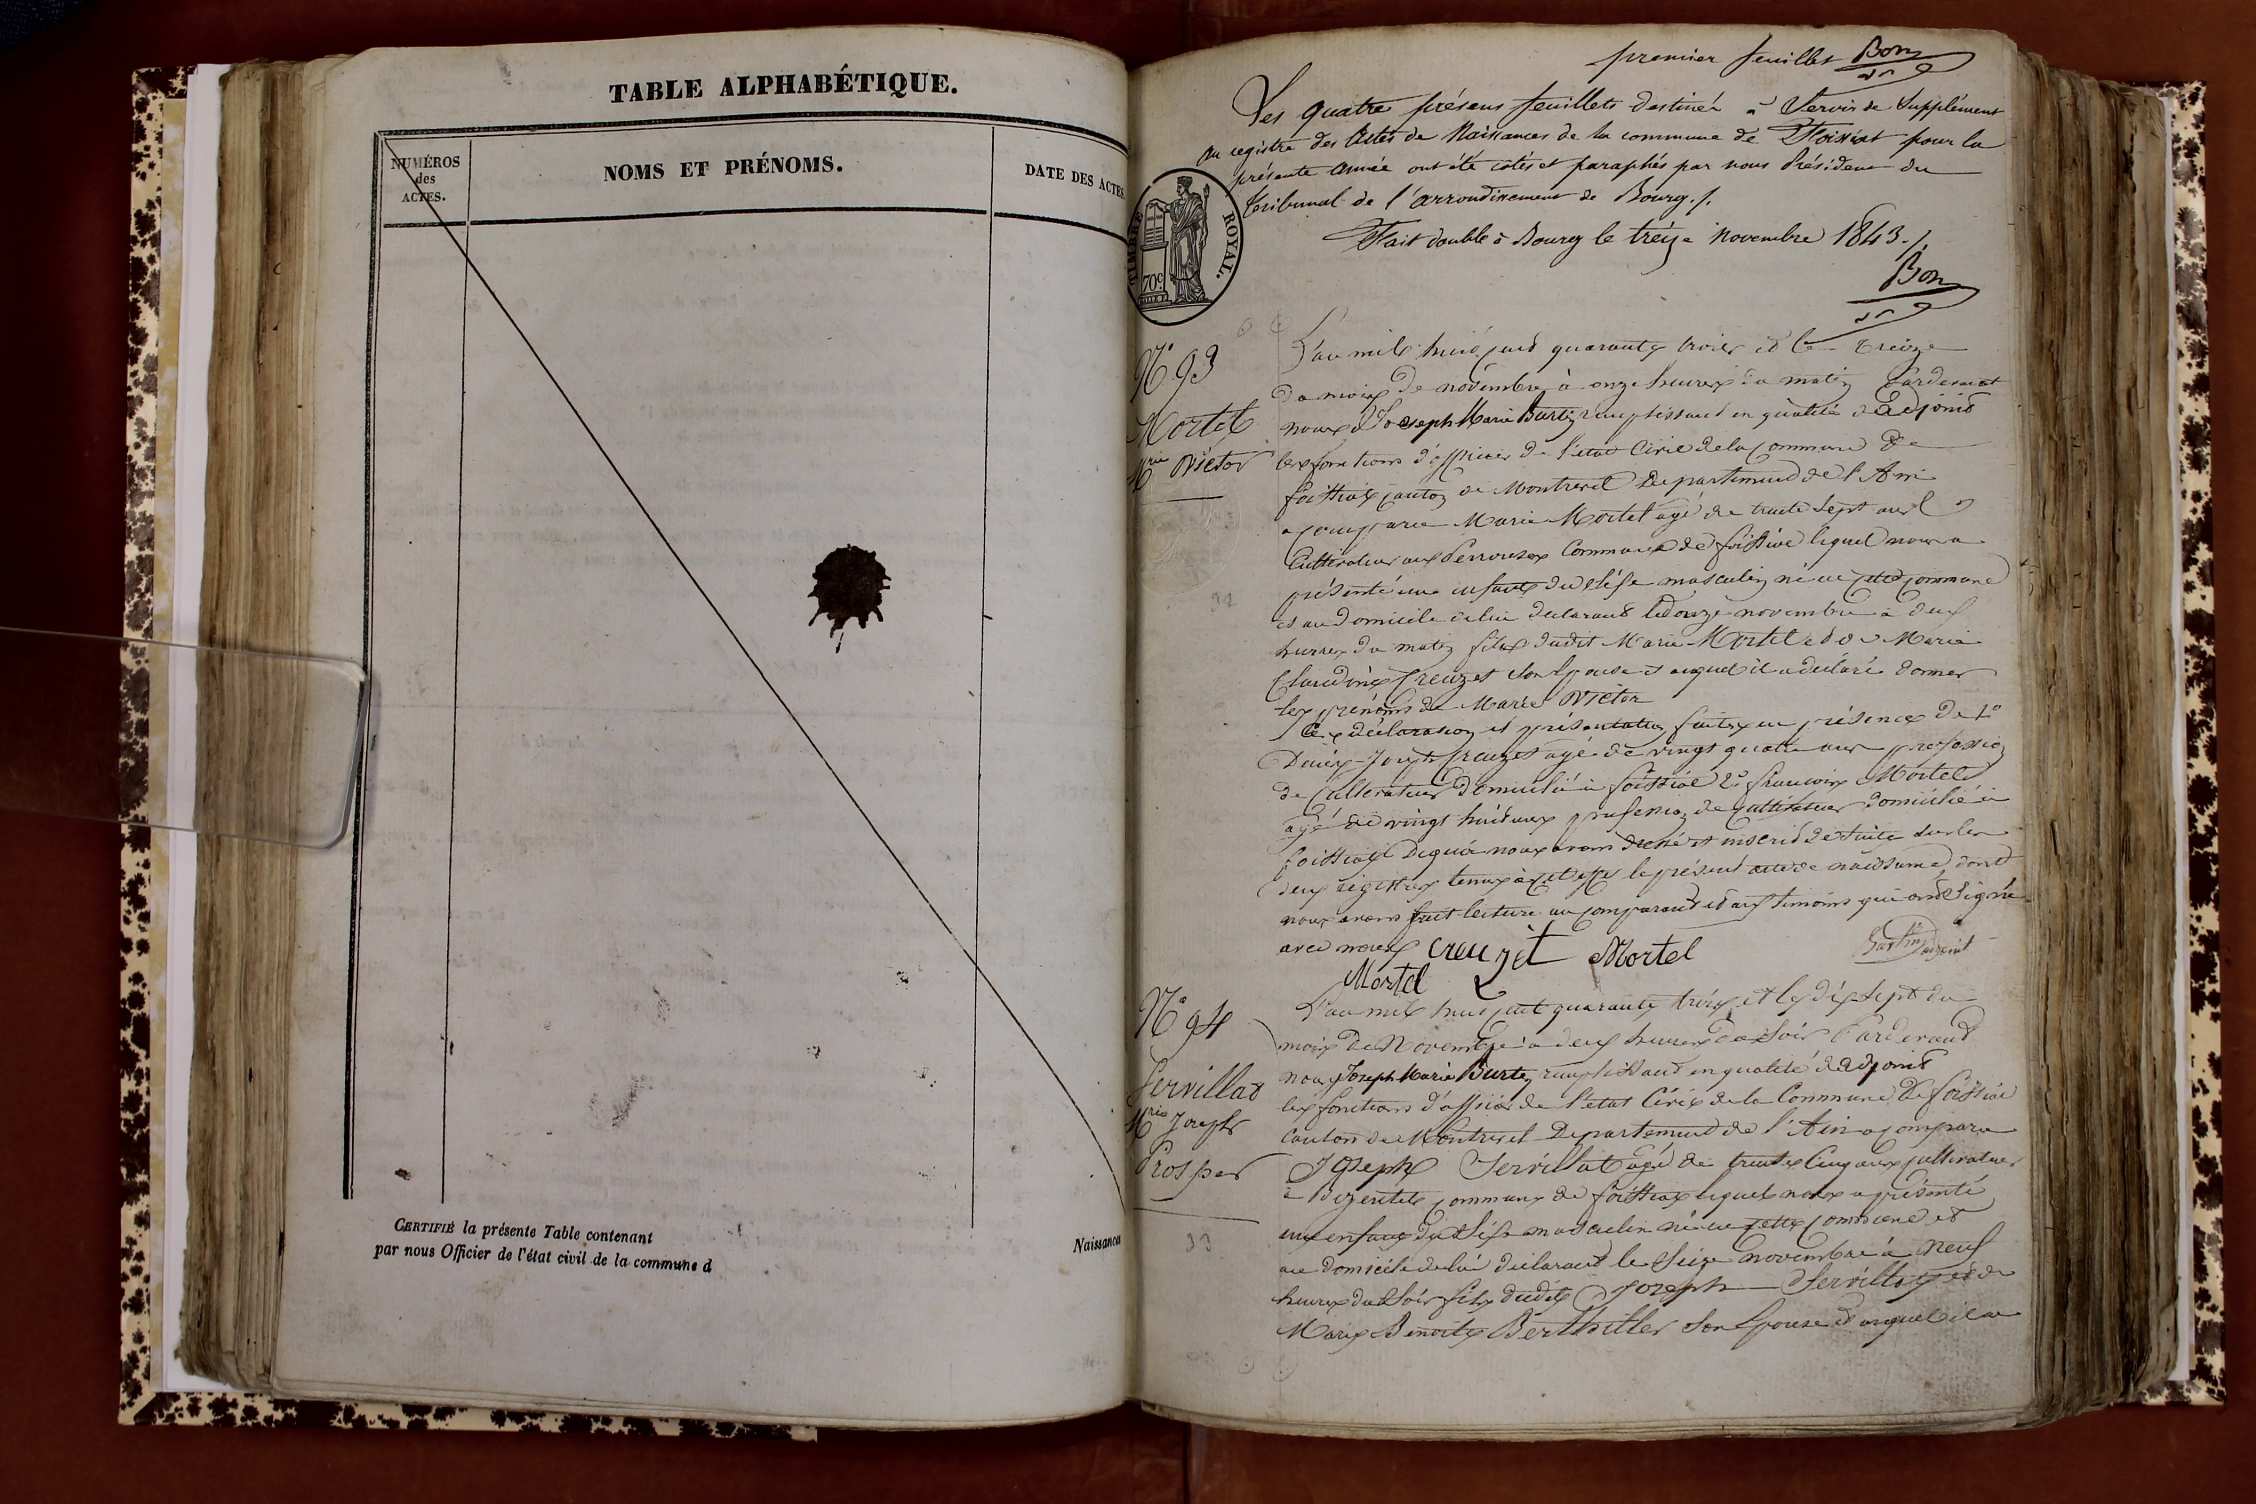 TABLE ALPHABÉTIQUE.
NUMÉROS
des
ACTES.
NOMS ET PRÉNOMS.
DATE DES ACTES
CERTIFIÉ la présente Table contenant
par nous Officier de l'état civil de la commune d
Naissances
premier feuillet Bon
Les quatre présens feuillets destinés à Servir de Supplément
au registre des Actes de Naissances de la commune de Foissiat pour la
présente année ont été cotés et paraphés par nous Président du
tribunal de l'arrondissement de Bourg./.
Fait double à Bourg le treize Novembre 1843./.
Bon
TIMBRE ROYAL.
70c
N° 93
Mortel
Mrie Victor
L'an mil huit cent quarante trois et le treize
du mois de novembre à onze heures du matin Pardevant
nous Joseph Marie Burtin remplissant en qualité d'Adjoint
les fonctions d'officier de l'état Civil de la Commune de
foissiat canton de Montrevel Département de l'Ain
a comparu Marie Mortel agé de trente Sept ans
Cultivateur aux Perrouses Commune de foissiat lequel nous a
présenté un enfant du sèxe masculin né en cette commune
et au domicile de lui déclarant le douze novembre à deux
heures du matin fils dudit Marie Mortel et de Marie
Claudine Creuzet son Epouse et auquel il a déclaré donner
les prénoms de Marie Victor
Ces déclaration et présentation faites en présence de 1°
Denis Joseph Creuzet agé de vingt quatre ans profession
de Cultivateur domicilié à foissiat 2° francois Mortel
agé de vingt huit ans profession de Cultivateur domicilié à
foissiat De quoi nous avons dressé et inscrit de suite sur les
deux registres tenus à cet effet le présent acte de naissance dont
nous avons fait lecture au comparant et aux témoins qui ont Signé
avec nous creuzet Mortel Burtin adjoint
Mortel
N° 94
Servillat
Mrie Joseph
Prosper
L'an mil huit cent quarante trois et le dix sept du
mois de Novembre à deux heures du soir Pardevant
nous Joseph Marie Burtin remplissant en qualité d'adjoint
les fonctions d'officier de l'état Civil de la Commune de foissiat
Canton de Montrevel Département de l'Ain a comparu
Joseph Servillat agé de trente cinq ans cultivateur
à Bezentet commune de foissiat lequel nous a présenté
un enfant du Sèxe masculin né en cette commune et
au domicile de lui déclarant le Seize novembre à neuf
heures du Soir fils dudit Joseph Servillat et de
Marie Benoite Berthillier son Epouse et auquel il a
32
33